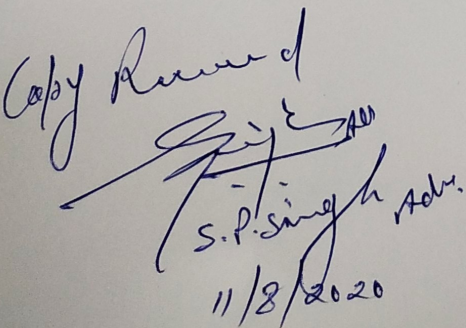 Copy Received
S.P. Singh Adv.
11/8/2020